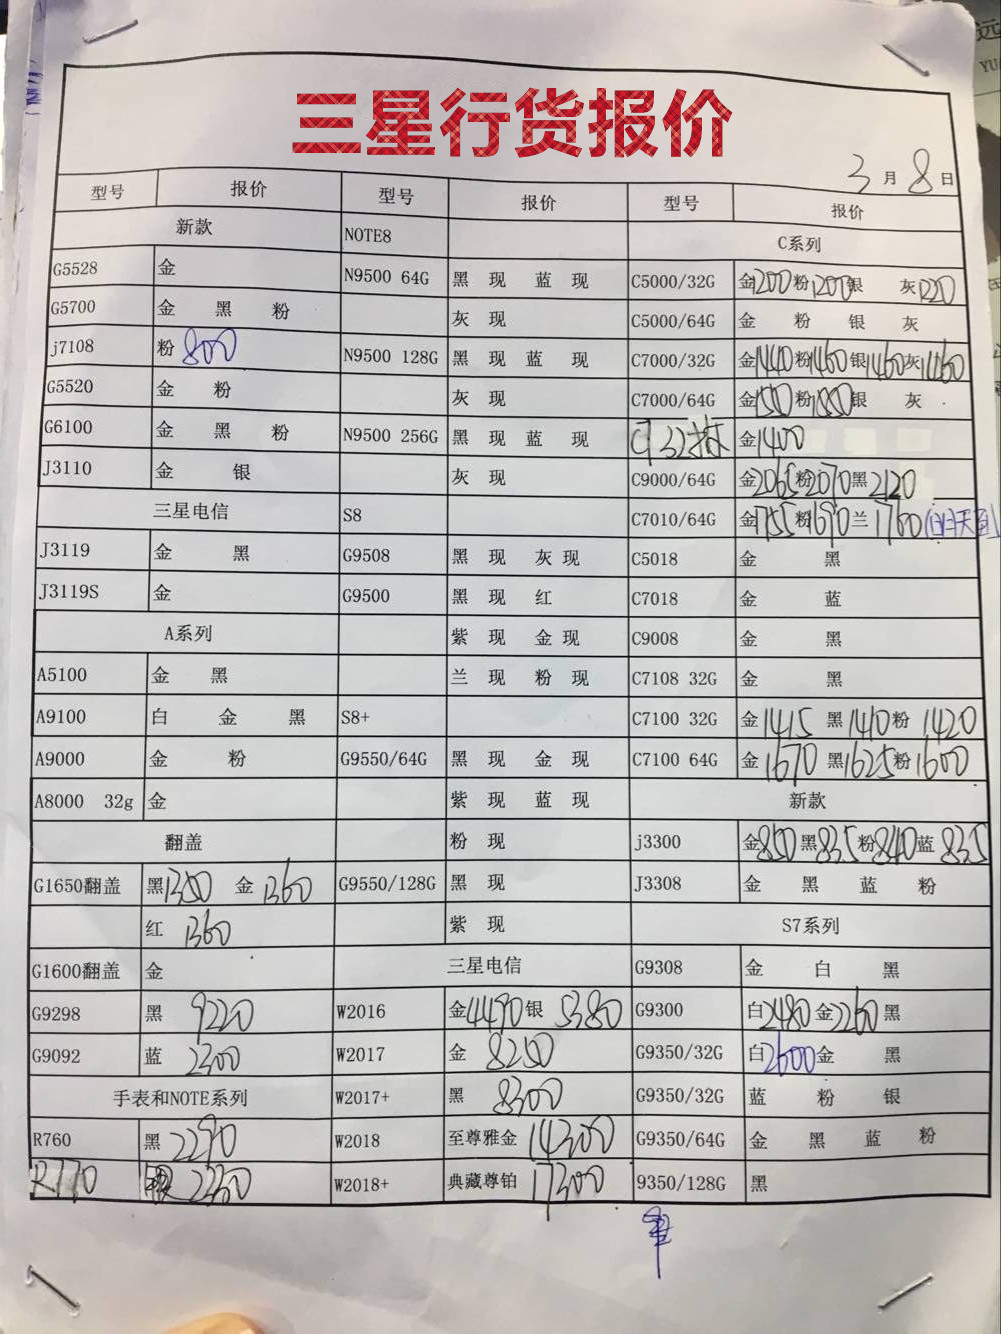 三星行货报价
3月8日
型号 报价 型号 报价 型号 报价
新款 NOTE8 C系列
G5528 金 N9500 64G 黑 现 蓝 现 C5000/32G 金1200粉1200银 灰1220
G5700 金 黑 粉 灰 现 C5000/64G 金 粉 银 灰
j7108 粉 800 N9500 128G 黑 现 蓝 现 C7000/32G 金1440粉1460银1460灰1460
G5520 金 粉 灰 现 C7000/64G 金1550粉1550银 灰
G6100 金 黑 粉 N9500 256G 黑 现 蓝 现 金1400
J3110 金 银 灰 现 C9000/64G 金2065粉2070黑2120
三星电信 S8 C7010/64G 金1755粉1690兰1760
J3119 金 黑 G9508 黑 现 灰 现 C5018 金 黑
J3119S 金 G9500 黑 现 红 C7018 金 蓝
A系列 紫 现 金 现 C9008 金 黑
A5100 金 黑 兰 现 粉 现 C7108 32G 金 黑
A9100 白 金 黑 S8+ C7100 32G 金1415 黑1410粉 1420
A9000 金 粉 G9550/64G 黑 现 金 现 C7100 64G 金1670 黑1625粉1600
A8000 32g 金 紫 现 蓝 现 新款
翻盖 粉 现 j3300 金850黑835粉840蓝 835
G1650翻盖 黑1350 金 1360 G9550/128G 黑 现 J3308 金 黑 蓝 粉
红 1360 紫 现 S7系列
G1600翻盖 金 三星电信 G9308 金 白 黑
G9298 黑 9220 W2016 金4490银 5380 G9300 白2480金2260黑
G9092 蓝 2300 W2017 金 8250 G9350/32G 白2600金 黑
手表和NOTE系列 W2017+ 黑 8300 G9350/32G 蓝 粉 银
R760 黑 2290 W2018 至尊雅金 14300 G9350/64G 金 黑 蓝 粉
R770 银 2330 W2018+ 典藏尊铂 17300 9350/128G 黑